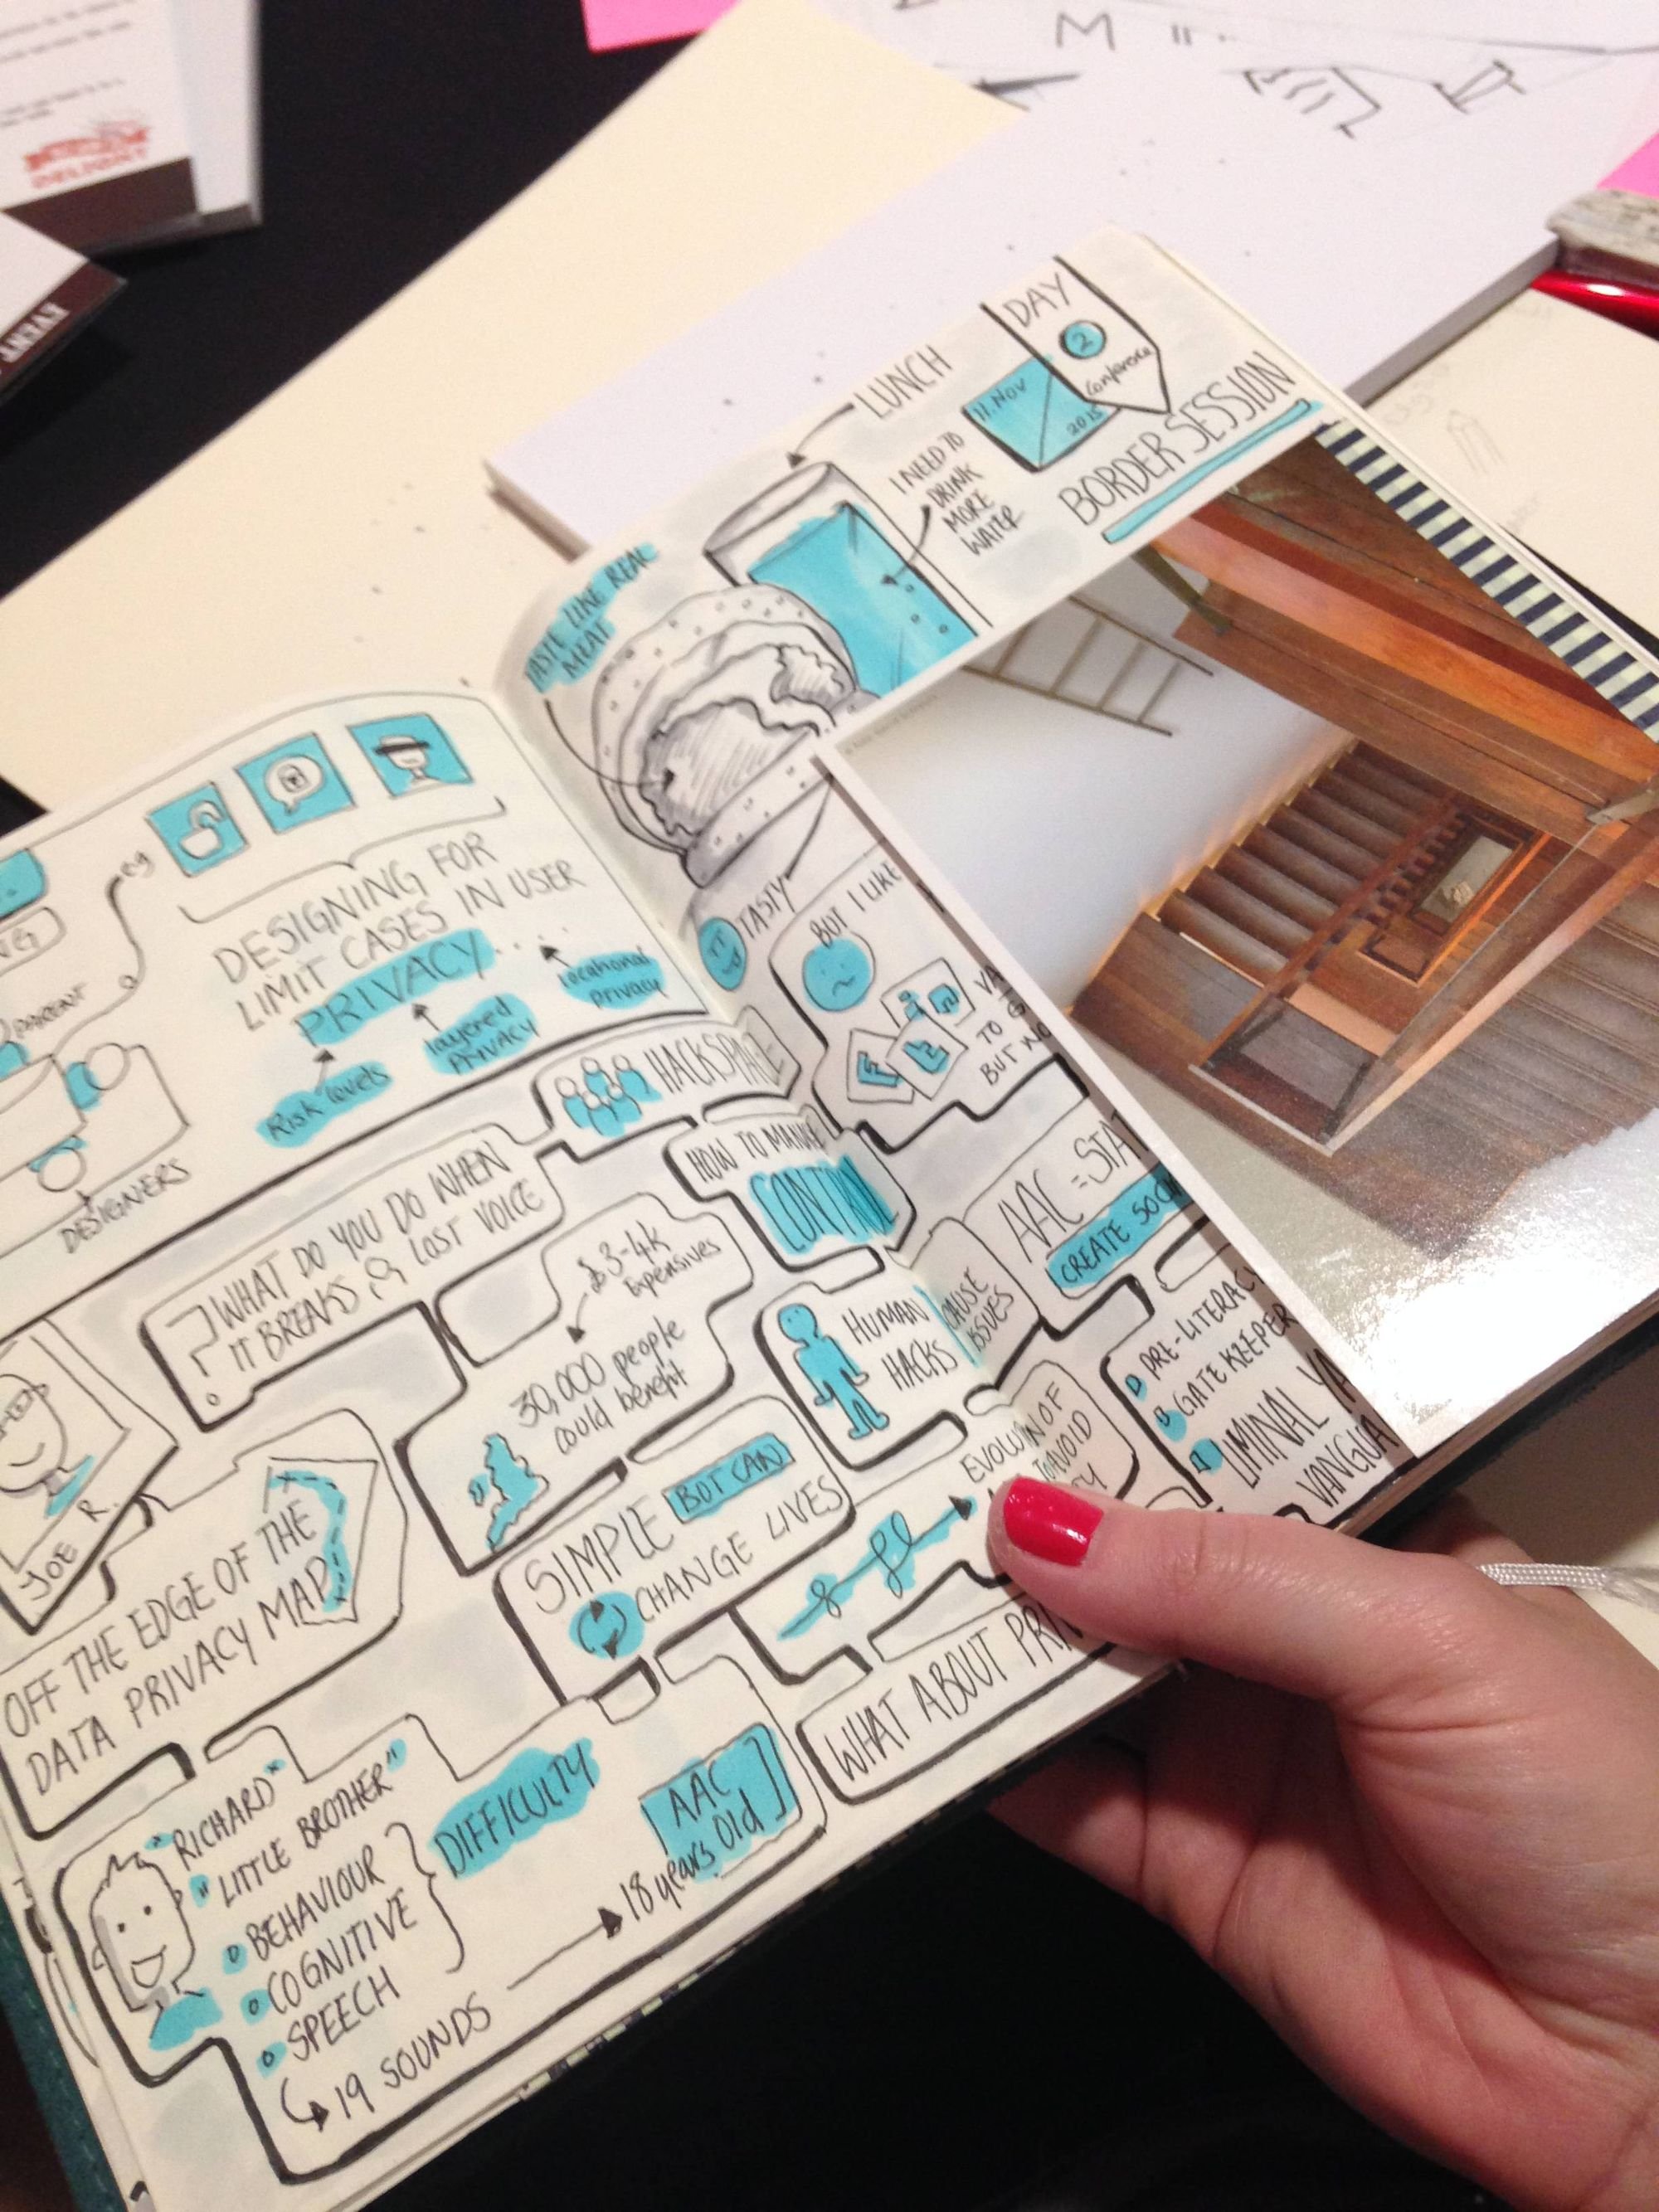 DELIGHT
EVENT
DAY
2
Conference
11. NOV
2015
BORDER SESSION
LUNCH
I NEED TO
DRINK
MORE
WATER
TASTE LIKE REAL
MEAT
TASTY
BUT I LIKE
TO
BUT NO
eg
DESIGNING FOR
LIMIT CASES IN USER
PRIVACY.....
Risk levels
layered
PRIVACY
locational
privacy
PARENT
DESIGNERS
HACKSPACE
? WHAT DO YOU DO WHEN
IT BREAKS & LOST VOICE
HOW TO
$ 3-4k
Expensives
30,000 people
could benefit
HUMAN
HACKS
CAUSE
ISSUES
AAC =
CREATE
PRE-LITERACY
GATE KEEPER
LIMINAL
JOE R.
OFF THE EDGE OF THE
DATA PRIVACY MAP
SIMPLE BOT CAN
CHANGE LIVES
OF
AVOID
WHAT ABOUT
"RICHARD"
"LITTLE BROTHER"
BEHAVIOUR
COGNITIVE
SPEECH
DIFFICULTY
19 SOUNDS
18 years old
AAC